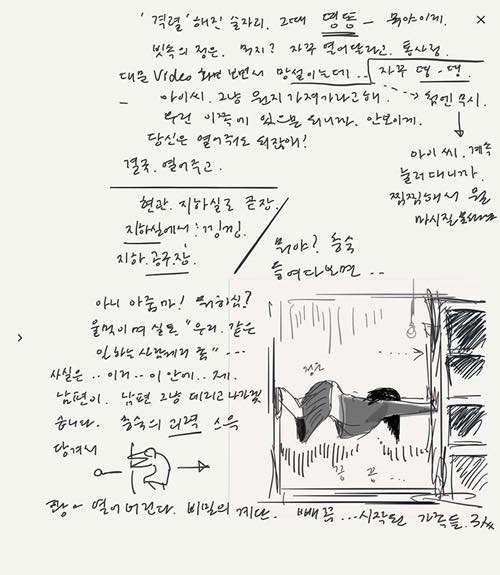 '격렬'해진 술자리. 그때 띵똥 — 뭐야이게.
빗속의 정은. 뭐지? 자꾸 열어달라고. 통사정.
대문 Video 화면 보면서 망설이는데... 자꾸 띵-똥.
아이씨. 그냥 뭔지 가져가라고해. 첨엔 무시.
이쪽에 있으믄 되니까. 안보이게.
당신은 열어줘도 되잖애!
결국. 열어주고.
아이 씨. 계속
눌러 대니까.
찜찜해서 뭘
마시질
현관. 지하실로 곧장.
지하실에서 : 낑낑.
지하. 공구장
뭐야? 충숙
들여다보면 ..
아니 아줌마! 뭐하심?
울먹이며 실토 "우리. 같은
일하는 사람에게 좀" ---
사실은 .. 이거 .. 이 안에.. 제.
남편이. 남편 그냥 데리고 나가겠
습니다. 충숙의 괴력
당겨서
정은
끙 끙 ...
쾅~ 열어버린다. 비밀의 계단. ...시작된 가족들.